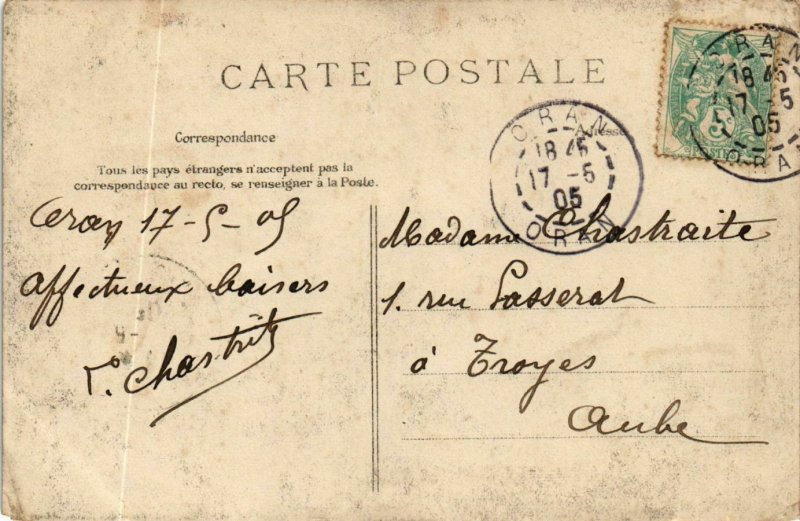 CARTE POSTALE
Correspondance
Adresse
Tous les pays étrangers n'acceptent pas la
correspondance au recto, se renseigner à la Poste.
ORAN
18 45
17 - 5
05
ORAN
ORAN
18 45
17 - 5
05
ORAN
Oran 17-5-05
Affectueux baisers
Madame Chastraite
1. rue Passerat
à Troyes
Aube